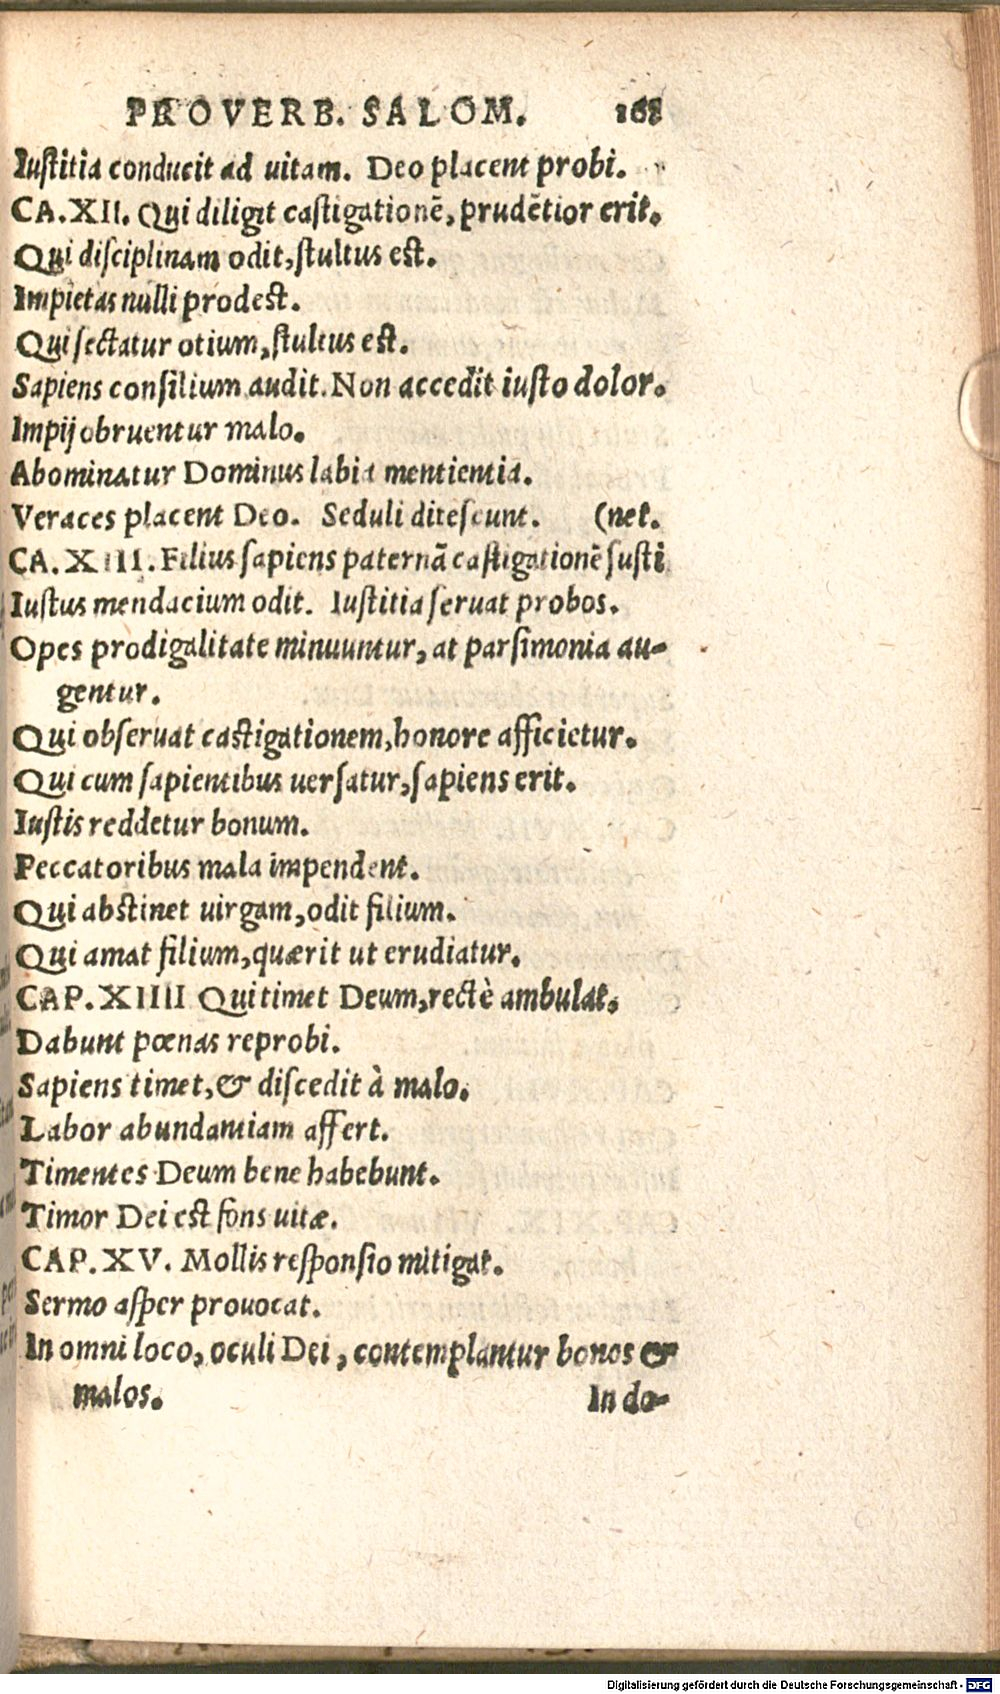 PROVERB. SALOM. 168
Iustitia conducit ad uitam. Deo placent probi.
CA. XII. Qui diligit castigationē, prudētior erit.
Qui disciplinam odit, stultus est.
Impietas nulli prodest.
Qui sectatur otium, stultus est.
Sapiens consilium audit. Non accedit iusto dolor.
Impij obruentur malo.
Abominatur Dominus labia mentientia.
Veraces placent Deo. Seduli ditescunt. (net.
CA. XIII. Filius sapiens paternā castigationē susti
Iustus mendacium odit. Iustitia seruat probos.
Opes prodigalitate minuuntur, at parsimonia au-
gentur.
Qui obseruat castigationem, honore afficietur.
Qui cum sapientibus uersatur, sapiens erit.
Iustis reddetur bonum.
Peccatoribus mala impendent.
Qui abstinet uirgam, odit filium.
Qui amat filium, quærit ut erudiatur.
CAP. XIIII Qui timet Deum, rectè ambulat.
Dabunt pœnas reprobi.
Sapiens timet, & discedit à malo.
Labor abundantiam affert.
Timentes Deum bene habebunt.
Timor Dei est fons uitæ.
CAP. XV. Mollis responsio mitigat.
Sermo asper prouocat.
In omni loco, oculi Dei, contemplantur bonos &
malos. In do-
Digitalisierung gefördert durch die Deutsche Forschungsgemeinschaft - DFG